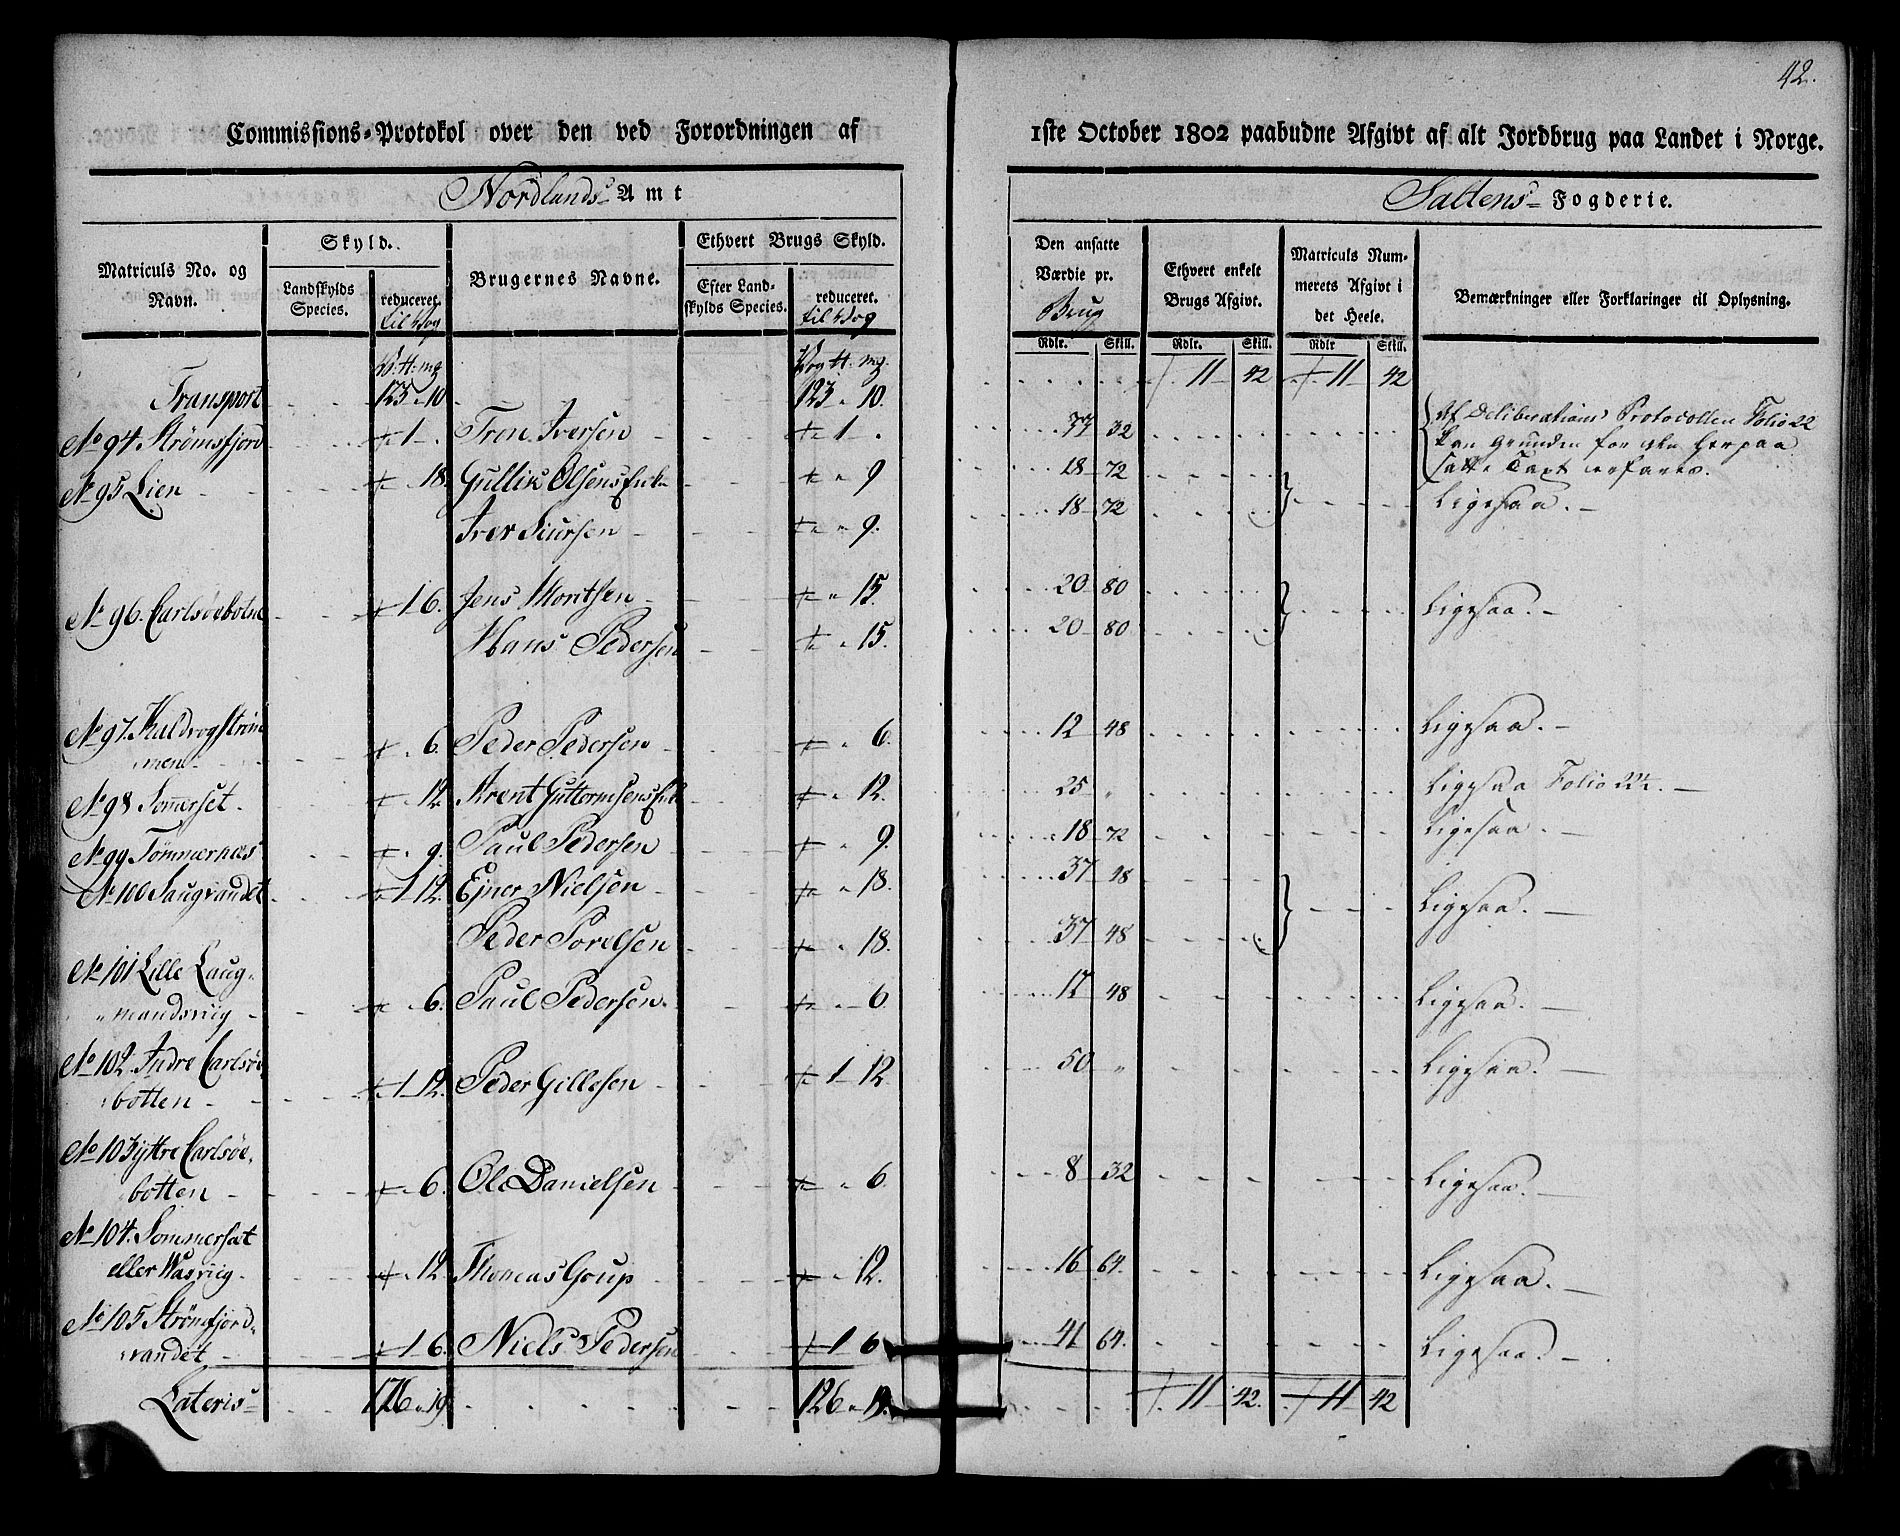 42.
Commissions-Protokol over den ved Forordningen af 1ste October 1802 paabudne Afgivt af alt Jordbrug paa Landet i Norge.
Nordlands Amt
Saltens Fogderie.
Matriculs No. og Navn.
Skyld.
Landskylds Species.
reduceret. til Vog
Brugernes Navne.
Ethvert Brugs Skyld.
Efter Landskylds Species.
reduceret. til Vog
Den ansatte Værdie pr. Brug
Ethvert enkelt Brugs Afgivt.
Matriculs Nummerets Afgivt i det Heele.
Bemærkninger eller Forklaringer til Oplysning.
Rdlr. Skill. Rdlr. Skill. Rdlr Skill.
Transport 123 " 10 123 " 10. 11 42 11 42
No 94. Strømsfjord 1 " Tron Iversen 1 " 37 32 Af Deliberations Protocollen Folio 22
kan Grunden for den herpaa
satte Taxt erfares.
No 95 Lien " 18. Gullik Olsens Enke " 9 18 72 Ligesaa.
Iver Siursen " 9. 18 72
No 96. Carlsøebotne 1 6. Jens Moritsen " 15. 20 80 Ligesaa.
Hans Pedersen " 15. 20 80
No 97. Kaldvogstrømmen " 6. Peder Pedersen " 6. 12 48 Ligesaa.
No 98 Somerset. " 12. Arent Guttormsens Enke " 12. 25 " Ligesaa Folio 22½.
No 99 Tømmernæs " 9. Paul Pedersen " 9. 18 72 Ligesaa.
No 100 Saugvandet 1 12. Ejner Nielsen " 18. 37 48 Ligesaa.
Peder Torelsen " 18. 37 48
No 101 Lille Laugmandsviig " 6. Paul Pedersen " 6 12 48 Ligesaa.
No 102. Indre Carlsøebotten 1 12. Peder Gillesen 1 12 50 " Ligesaa.
No 103 ÿttre Carlsøebotten " 6. Ole Danielsen " 6. 8 32 Ligesaa.
No 104. Sommersæt
eller Wasviig " 12. Thomas Goup " 12. 16 64. Ligesaa.
No 105 Strømfjordvandet 1 6. Niels Pedersen 1 6 41 64. Ligesaa.
Lateris 126 " 19. 126 " 19. 11 42. 11 42